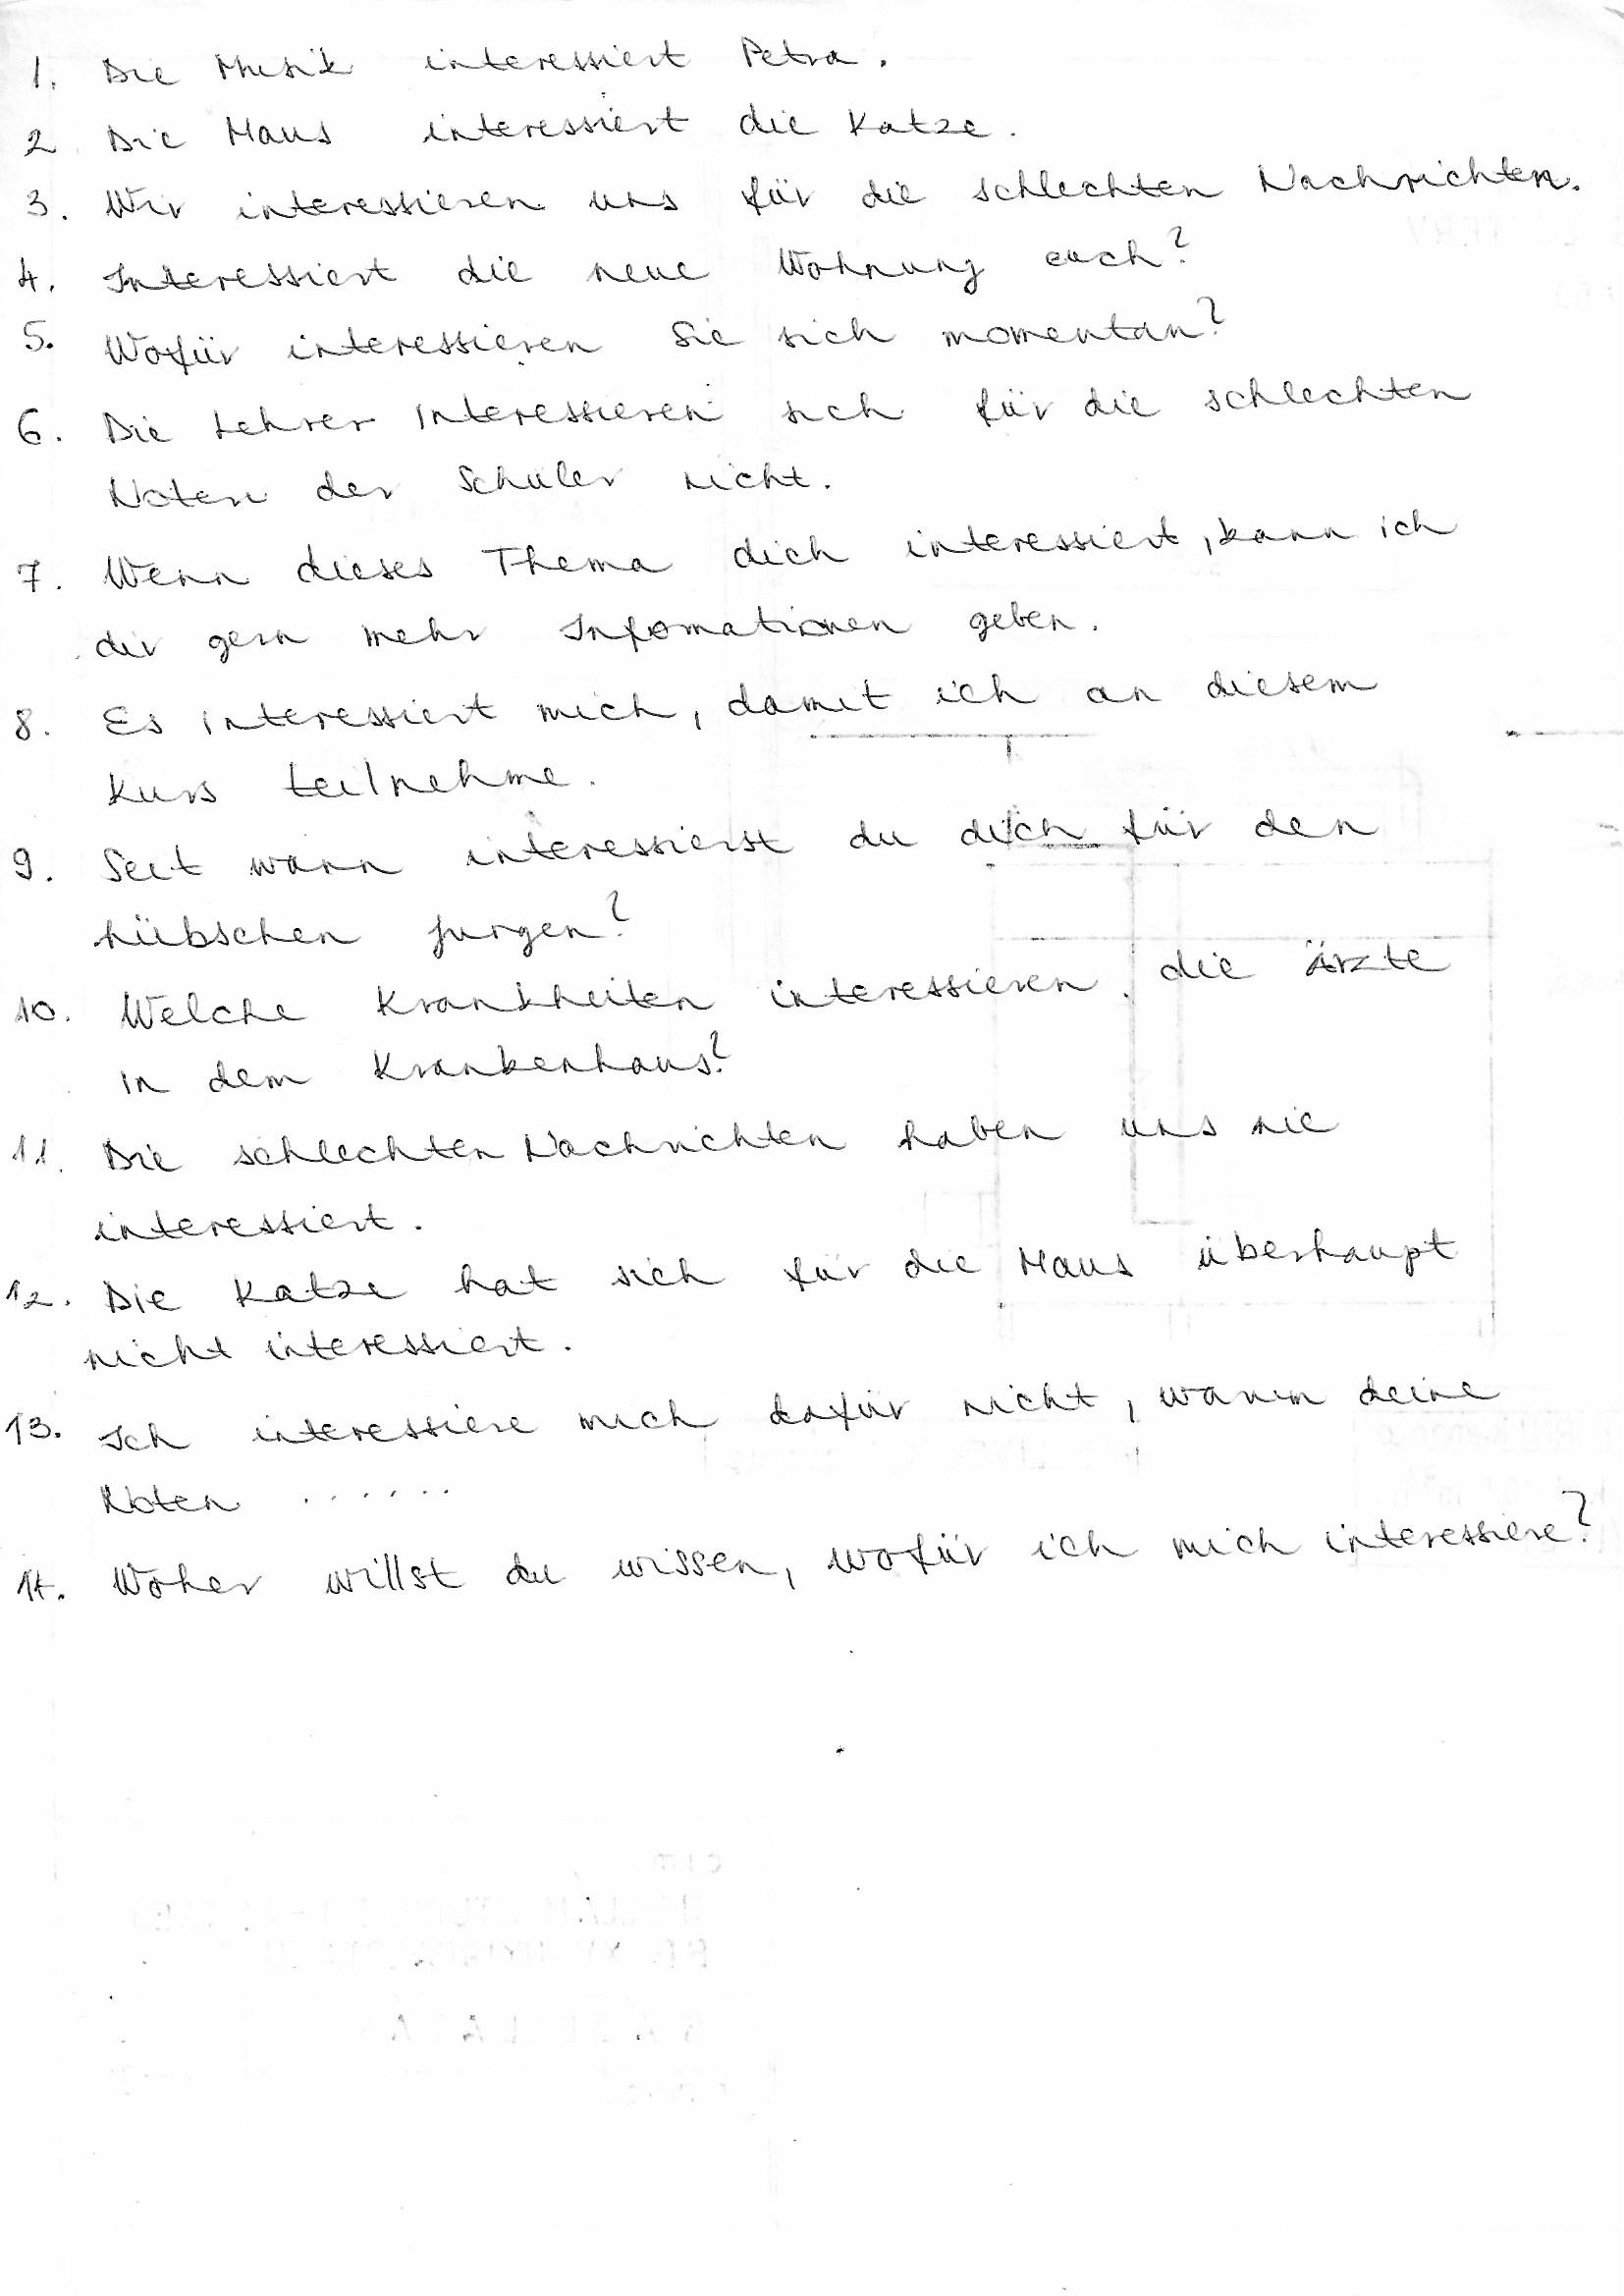 1. Die Musik interessiert Petra.
2. Die Maus interessiert die Katze.
3. Wir interessieren uns für die schlechten Nachrichten.
4. Interessiert die neue Wohnung euch?
5. Wofür interessieren Sie sich momentan?
6. Die Lehrer interessieren sich für die schlechten
Noten der Schüler nicht.
7. Wenn dieses Thema dich interessiert, kann ich
dir gern mehr Infomationen geben.
8. Es interessiert mich, damit ich an diesem
Kurs teilnehme.
9. Seit wann interessierst du dich für den
hübschen Jungen?
10. Welche Krankheiten interessieren die Ärzte
in dem Krankenhaus?
11. Die schlechten Nachrichten haben uns nie
interessiert.
12. Die Katze hat sich für die Maus überhaupt
nicht interessiert.
13. Ich interessiere mich dafür nicht, warum deine
Noten ......
14. Woher willst du wissen, wofür ich mich interessiere?